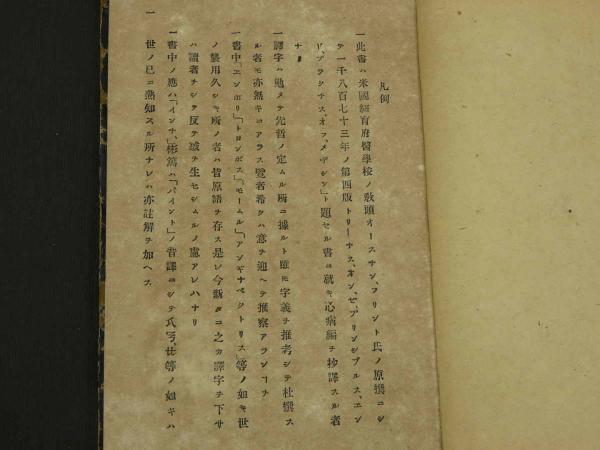 凡例
一此書ハ米國紐育府醫學校ノ敎頭オースチン、フリント氏ノ原撰ニシ
テ一千八百七十三年ノ第四版トリーチス、オン、ゼ、プリンシプルス、エン
ド、プラシチス、オフ、メヂシン」ト題セル書ニ就キ心病編ヲ抄譯スル者
ナリ
一譯字ハ勉メテ先哲ノ定ムル所ニ據ルト雖モ字義ヲ推考シテ杜撰ス
ル者モ亦無キニアラス覽者希クハ意ヲ迎ヘテ推察アランヿヲ
一書中「エンボリ」「トロンボス」「モールム」「アンギナペクトリス」等ノ如キ世
ノ襲用久シキ所ノ者ハ皆原語ヲ存ス是レ今新タニ之カ譯字ヲ下サ
ハ讀者ヲシテ反テ惑ヲ生セシムルノ慮アレハナリ
一書中ノ應ハ「インチ」彬篤ハ「パイント」ノ音譯ニシテ氏、等ノ如キハ
世ノ已ニ熟知スル所ナレハ亦註解ヲ加ヘス
一